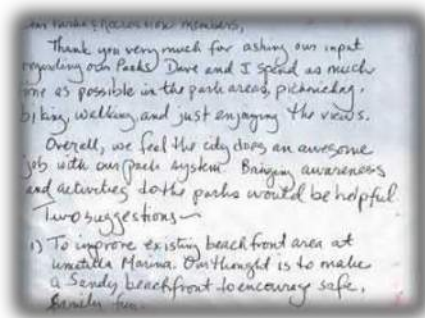 Dear Parks & Recreation members,
Thank you very much for asking our input
regarding our Parks Dave and I spend as much
time as possible in the park areas, picnicking,
biking, walking, and just enjoying the views.
Overall, we feel the city does an awesome
job with our park system. Bringing awareness
and activities to the parks would be helpful.
Two suggestions~
1) To improve existing beachfront area at
Umatilla Marina. Our thought is to make
a Sandy beachfront to encourage safe,
family fun.